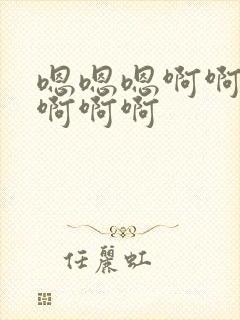 嗯嗯嗯啊啊
啊啊啊
任麗虹